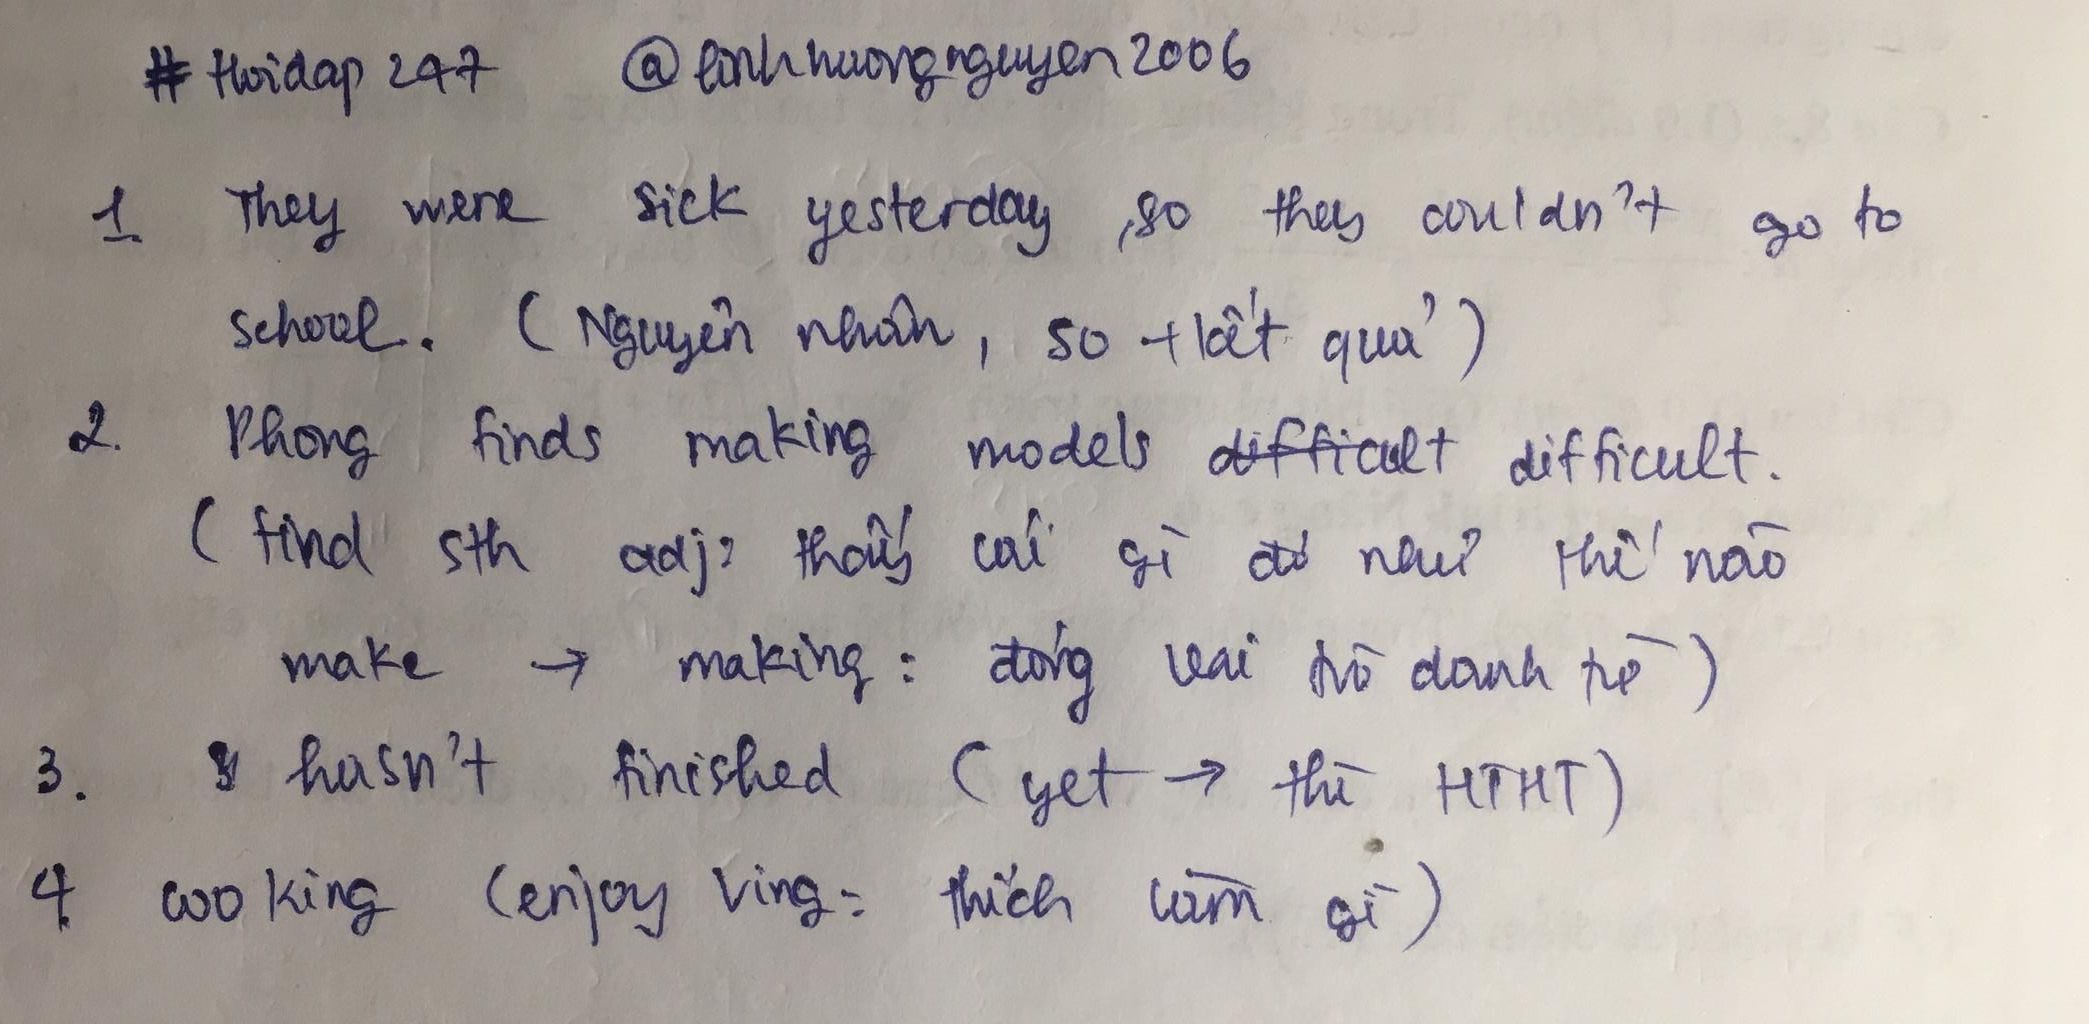 # Hoidap 247 @linhhuongnguyen2006
1 They were sick yesterday, so they couldn't go to
school. (Nguyên nhân, so + kết quả)
2. Phong finds making models difficult difficult.
(find sth adj: thấy cái gì đó như thế nào
make → making: đóng vai trò danh từ)
3. hasn't finished (yet → thì HTHT)
4 cooking (enjoy Ving: thích làm gì)